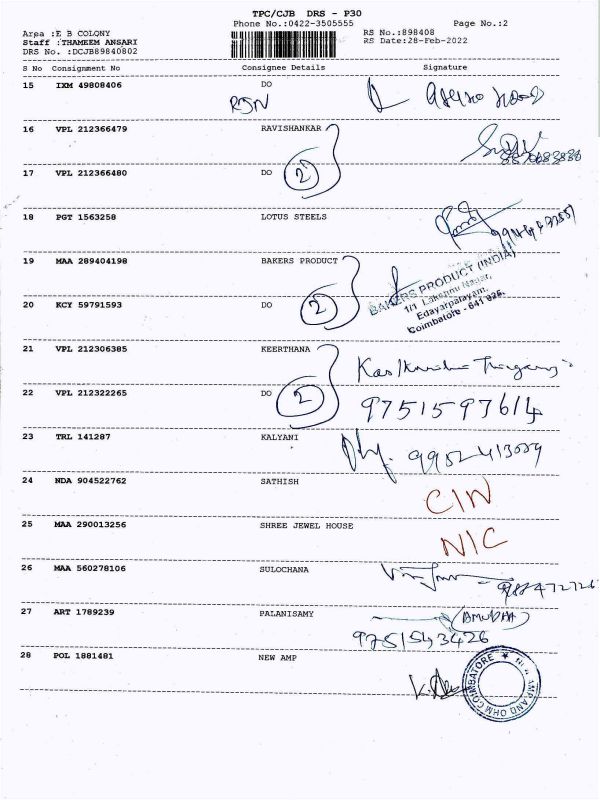 TPC/CJB DRS - P30
Phone No.:0422-3505555 Page No.:2
Area :E B COLONY
Staff :THAMEEM ANSARI
DRS No. :DCJB89840802
RS No.:898408
RS Date:28-Feb-2022
S No Consignment No Consignee Details Signature
15 IXM 49808406 DO
RJN
16 VPL 212366479 RAVISHANKAR
17 VPL 212366480 DO 2
18 PGT 1563258 LOTUS STEELS
19 MAA 289404198 BAKERS PRODUCT
BAKERS PRODUCT (INDIA)
1/1 Lakshmi Nagar,
Edayarpalayam,
Coimbatore - 641 025.
20 KCY 59791593 DO 2
21 VPL 212306385 KEERTHANA
22 VPL 212322265 DO 2 9751597614
23 TRL 141287 KALYANI
24 NDA 904522762 SATHISH CIN
25 MAA 290013256 SHREE JEWEL HOUSE NIC
26 MAA 560278106 SULOCHANA
27 ART 1789239 PALANISAMY (AMUDHA)
9751543426
28 POL 1881481 NEW AMP
AMP AND OHM COIMBATORE